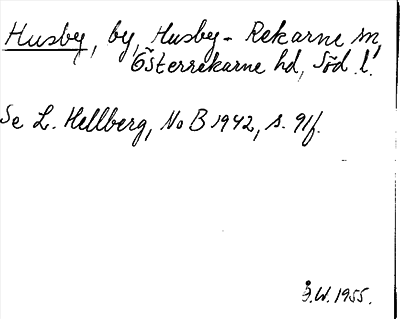 Husby, by, Husby-Rekarne sn,
Österrekarne hd, Söd. l.
Se L. Hellberg, NoB 1942, s. 91f.
Å.W. 1955.